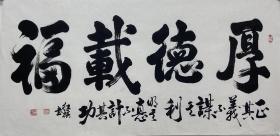 厚德載福
正其義不謀其利明其惪不計其功